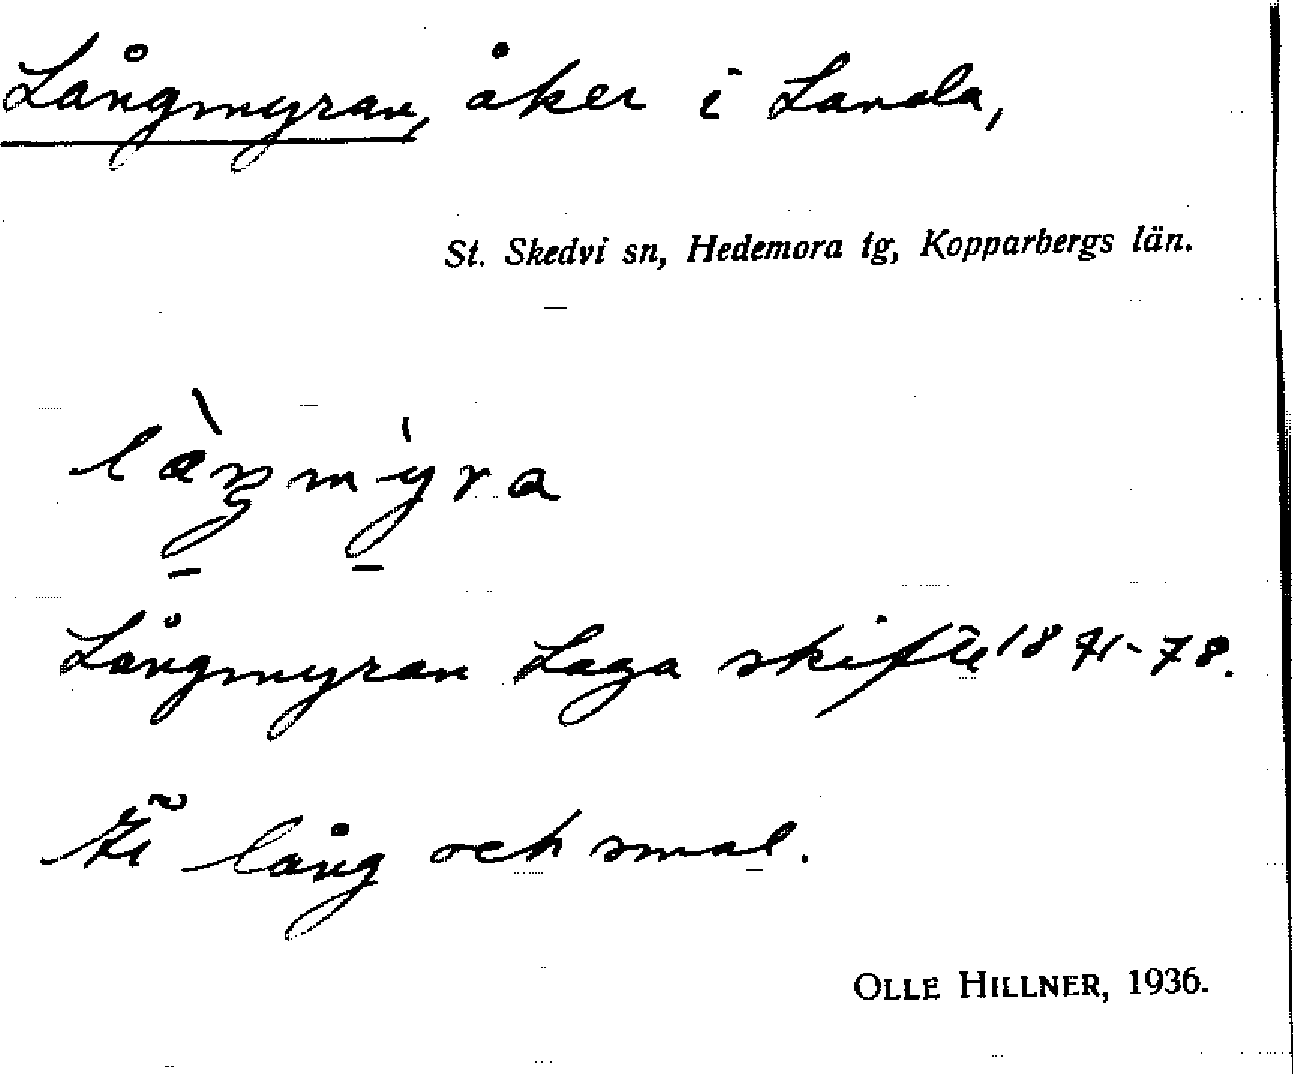 Långmyran, åker i Landa,
St. Skedvi sn, Hedemora tg, Kopparbergs län.
làŋmýra
Långmyran Laga skifte 1871-78.
Är lång och smal.
OLLE HILLNER, 1936.